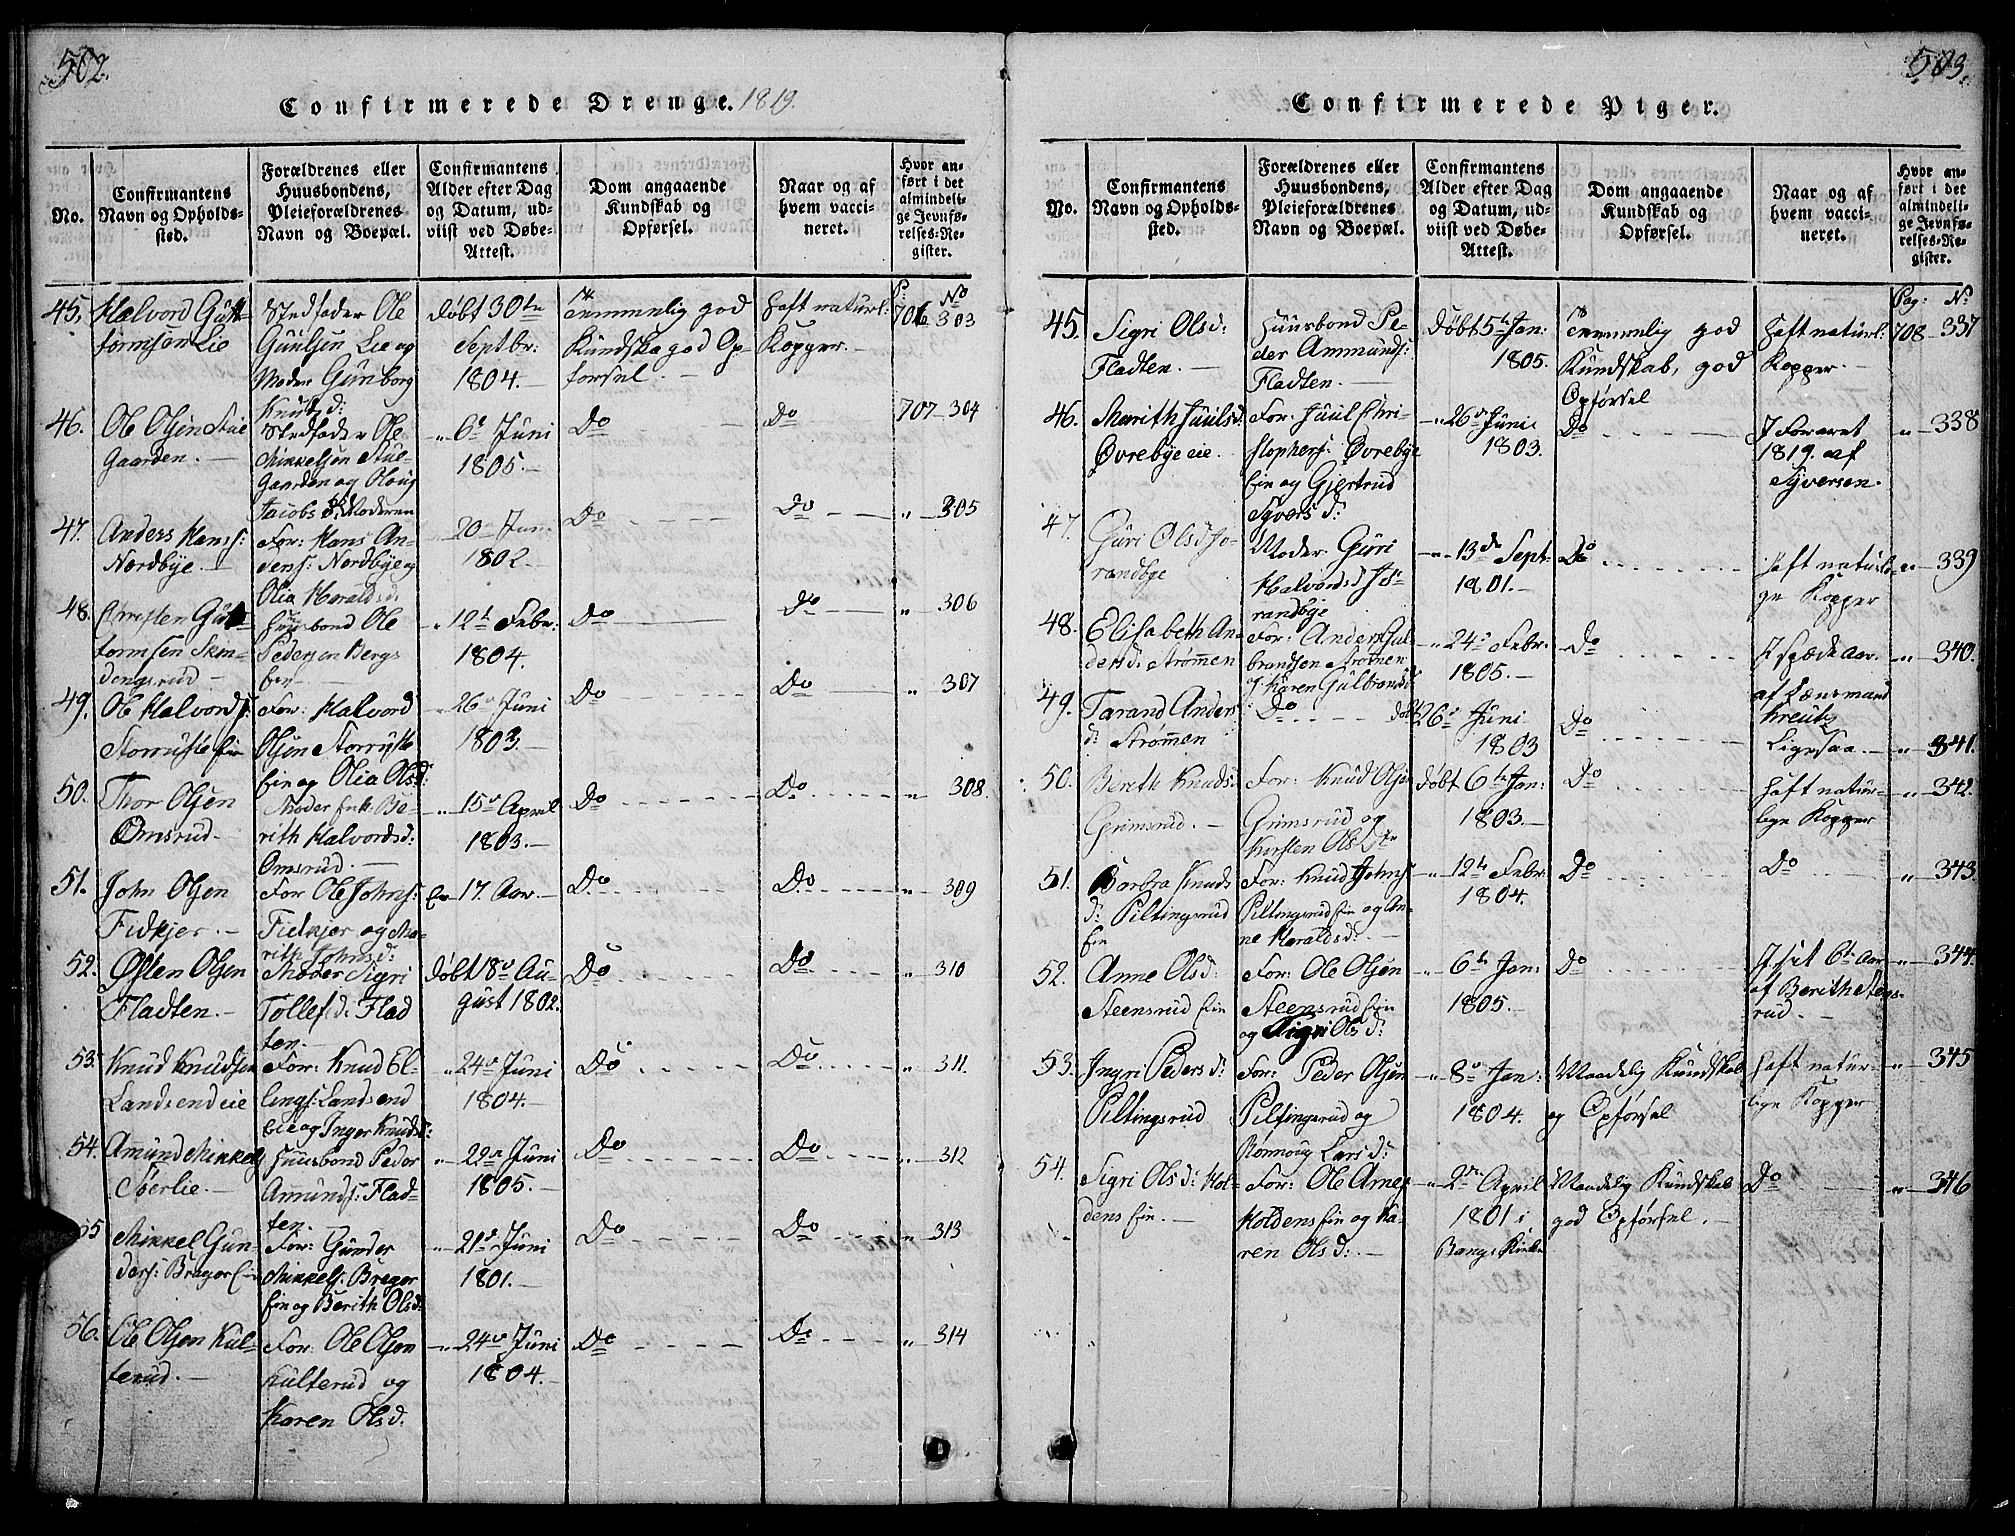 502.
Confirmerede Drenge. 1819.
No.
Confirmantens
Navn og Opholds-
sted.
Forældrenes eller
Huusbondens,
Pleieforældrenes
Navn og Boepæl.
Confirmantens
Alder efter Dag
og Datum, ud-
viist ved Døbe-
Attest.
Dom angaaende
Kundskab og
Opførsel.
Naar og af
hvem vacci-
neret.
Hvor an-
ført i det
almindeli-
ge Jevnfø-
relses-Re-
gister.
P: No
45. Halvord Gutt-
formsen Lie
Stedfader Ole
Guulsen Lie og
Moder Gunborg
Knudsd:
døbt 30te
Septbr:
1804.
Temmelig god
Kundska god Op-
førsel. –
Haft naturl:
Kopper. –
706 303
46. Ole Olsen Stue
Gaarden. –
Stedfader Ole
Mikkelsen Stue-
Gaarden og
Jacobsd: Moderen
" 6te Juni
1805. –
Do
Do
707 – 304
47. Anders Hans:
Nordbye. –
For: Hans An-
ders: Nordbye og
Olia Haraldsd:
20 Jun
1802. –
Do
Do
" 305
48. Christen Gut-
tormsen
Huusbond Ole
Pedersen Bergs
Ein –
" 12te Febr:
1804.
Do
Do
" 306
49. Ole Halvords:
Storruste Ein
For: Halvord
Olsen Storruste
Ein og Olia Olsd:
26de Juni
1803. –
Do
Do
" 307
50. Thor Olsen
Omsrud. –
Moder Enk. Be-
rith Halvordsd:
Omsrud. –
" 15de April
1803. –
Do
Do
" 308.
51. John Olsen
Fidkjer. –
For Ole Johns:
Fidkjer og Ma-
rith Johnsd:
17. Aar. –
Do
Do
" 309
52. Østen Olsen
Fladten. –
Moder Sigri
Tollefd: Flad
ten. –
døbt 18de Au-
gust 1802.
Do
Do
" 310
53. Knud Knudsen
Landsend eie
For: Knud El-
lings: Landsend
Eie og Inger Knudsd:
" 24de Juni
1804. –
Do
Do
" 311.
54. Amund Mikkels
Sverlie. –
Huusbond Peder
Ammunds: Flad-
ten. –
" 29de Juni
1805. –
Do
Do
" 312
55 Mikkel Gun-
ders: Brager Ein
For: Gunder
Mikkels: Brager
Ein og Berith Olsd:
" 21de Juni
1801. –
Do
Do
" 313
56. Ole Olsen Kul-
terud. –
For: Ole Olsen
Kulterud og
Karen Olsd:
24de Juni
1804. –
Do
Do
" 314
503.
Confirmerede Piger.
No.
Confirmantens
Navn og Opholds-
sted.
Forældrenes eller
Huusbondens,
Pleieforældrenes
Navn og Boepæl.
Confirmantens
Alder efter Dag
og Datum, ud-
viist ved Døbe-
Attest.
Dom angaaende
Kundskab og
Opførsel.
Naar og af
hvem vacci-
neret.
Hvor an-
ført i det
almindeli-
ge Jevnfø-
relses-Re-
gister.
Pag: No
45. Sigri Olsd:
Fladten. –
Huusbond Pe-
der Ammunds:
Fladten. –
døbt 5te Jan:
1805.
Temmelig god
Kundskab, god
Opførsel
Haft naturl:
Kopper. –
708 – 337
46. Marith Juulsd:
Øvrebye eie.
For: Juul Chri-
stophers: Øvrebye
Ein og Gjertrud
Syversd:
" 26de Juni
1803.
Do
I Foraret
1819. af
Syversen.
" 338
47. Guri Olsd Jo-
randbye
Moder Guri
Halvordsd Jo-
randbye
" 13de Sept
1801. –
Do
Haft naturli-
ge Kopper
" 339
48. Elisabeth An-
dersd: Strømmen
For: Anders Gul-
brandsen Strømen
og Karen Gulbrandsd
" 24de Febr:
1805. –
Do
I spæde Aar.
af Lænsmand
Kreutz
" 340.
49. Tarand Anders
d: Strømmen
Do
døbt 26de Juni
1803
Do
Ligesaa. –
" 341.
50. Berith Knudsd:
Grimsrud. –
For: Knud Olsen
Grimsrud og
Kirsten Olsd:
døbt 6te Jan:
1803. –
Do
Haft natur-
lige Kopper
" 342.
51. Barbra Knuds
d: Piltingsrud
Ein
For: Knud Johns:
Piltingsrud Ein og An-
ne Haraldsd: –
" 12te Febr:
1804.
Do
Do
" 343.
52. Anne Olsd:
Steensrud Ein
For: Ole Olsen
Steensrud Ein
og Sigri Olsd:
" 6te Jan:
1805. –
Do
I sit 6te Aar
af Berith Stens-
rud. –
" 344.
53. Ingri Pedersd:
Piltingsrud
For: Peder Olsen
Piltingsrud og
Rønnoug Larsd:
" 8de Jan:
1804.
Maadelig Kundskab
og Opførsel
Haft natur-
lige Kopper
" 345
54. Sigri Olsd: Hol-
dens Ein. –
For: Ole Arnes
Holdens Ein og Ka-
ren Olsd: –
" 2den April
1801 i
Bangs Kirke
Maadelig Kundskab
god Opførsel. –
Do
" 346